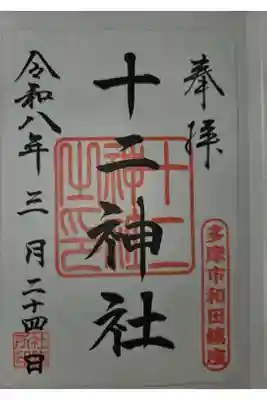 奉拝
多摩市和田鎮座
十二神社
十二神社之印
令和八年三月二十四日